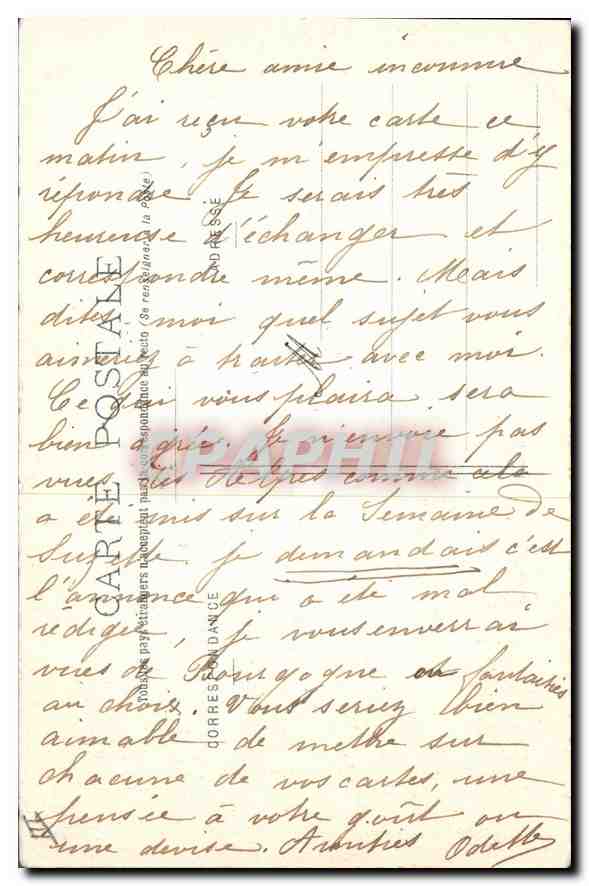 Chère amie inconnue
J'ai reçu votre carte ce
matin, je m'empresse d'y
répondre Je serais très
heureuse d'échanger et
correspondre même. Mais
dites moi quel sujet vous
aimeriez à traiter avec moi.
Ce qui vous plaira sera
bien agréé. Je n'envoie pas
vues des Alpes comme cela
a été mis sur la Semaine de
Suzette je demandais c'est
l'annonce qui a été mal
rédigée, je vous enverrai
vues de Bourgogne ou fantaisies
au choix. Vous seriez bien
aimable de mettre sur
chacune de vos cartes, une
pensée à votre goût ou
une devise. Amitiés Odette
CARTE POSTALE
Tous les pays étrangers n'acceptent pas la correspondance au recto (Se renseigner à la Poste)
CORRESPONDANCE
ADRESSE
CPAPHIL